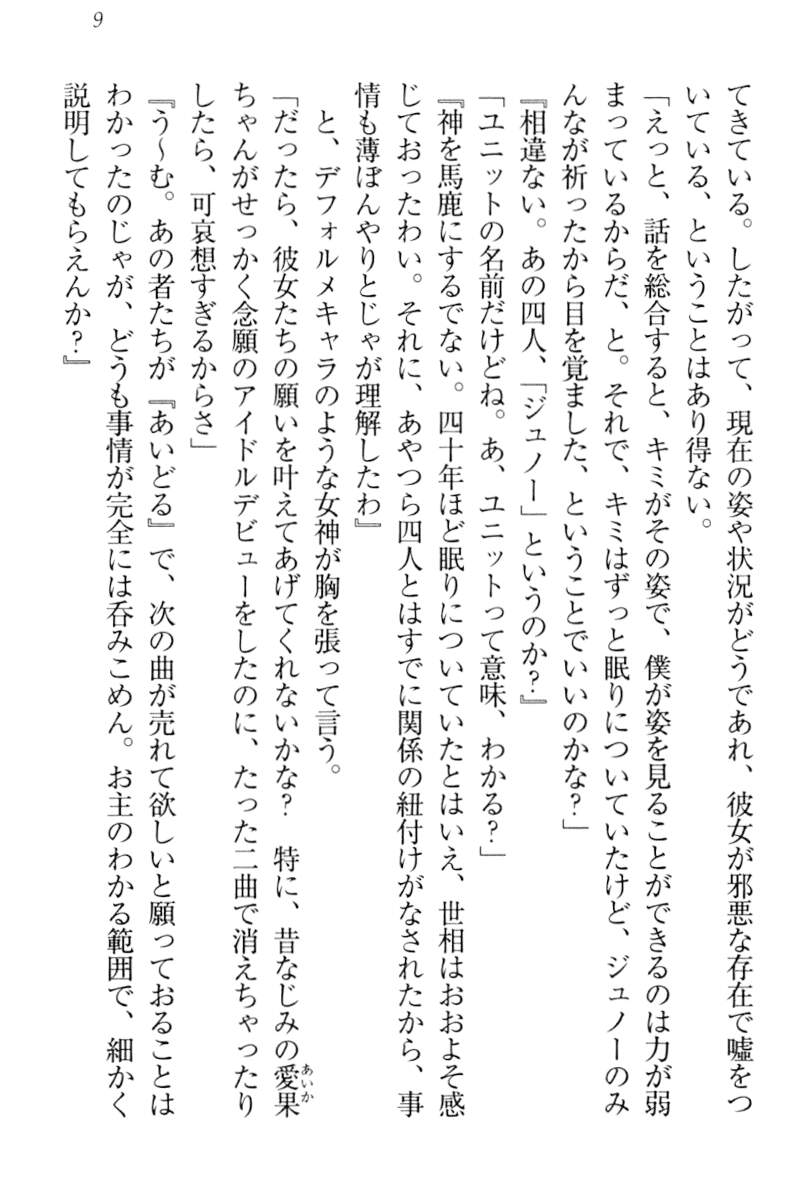 9
てきている。したがって、現在の姿や状況がどうであれ、彼女が邪悪な存在で嘘をつ
いている、ということはあり得ない。
「えっと、話を総合すると、キミがその姿で、僕が姿を見ることができるのは力が弱
まっているからだ、と。それで、キミはずっと眠りについていたけど、ジュノーのみ
んなが祈ったから目を覚ました、ということでいいのかな？」
『相違ない。あの四人、「ジュノー」というのか？』
「ユニットの名前だけどね。あ、ユニットって意味、わかる？」
『神を馬鹿にするでない。四十年ほど眠りについていたとはいえ、世相はおおよそ感
じておったわい。それに、あやつら四人とはすでに関係の紐付けがなされたから、事
情も薄ぼんやりとじゃが理解したわ』
　と、デフォルメキャラのような女神が胸を張って言う。
「だったら、彼女たちの願いを叶えてあげてくれないかな？　特に、昔なじみの愛果
あいか
ちゃんがせっかく念願のアイドルデビューをしたのに、たった二曲で消えちゃったり
したら、可哀想すぎるからさ」
『う～む。あの者たちが『あいどる』で、次の曲が売れて欲しいと願っておることは
わかったのじゃが、どうも事情が完全には呑みこめん。お主のわかる範囲で、細かく
説明してもらえんか？』